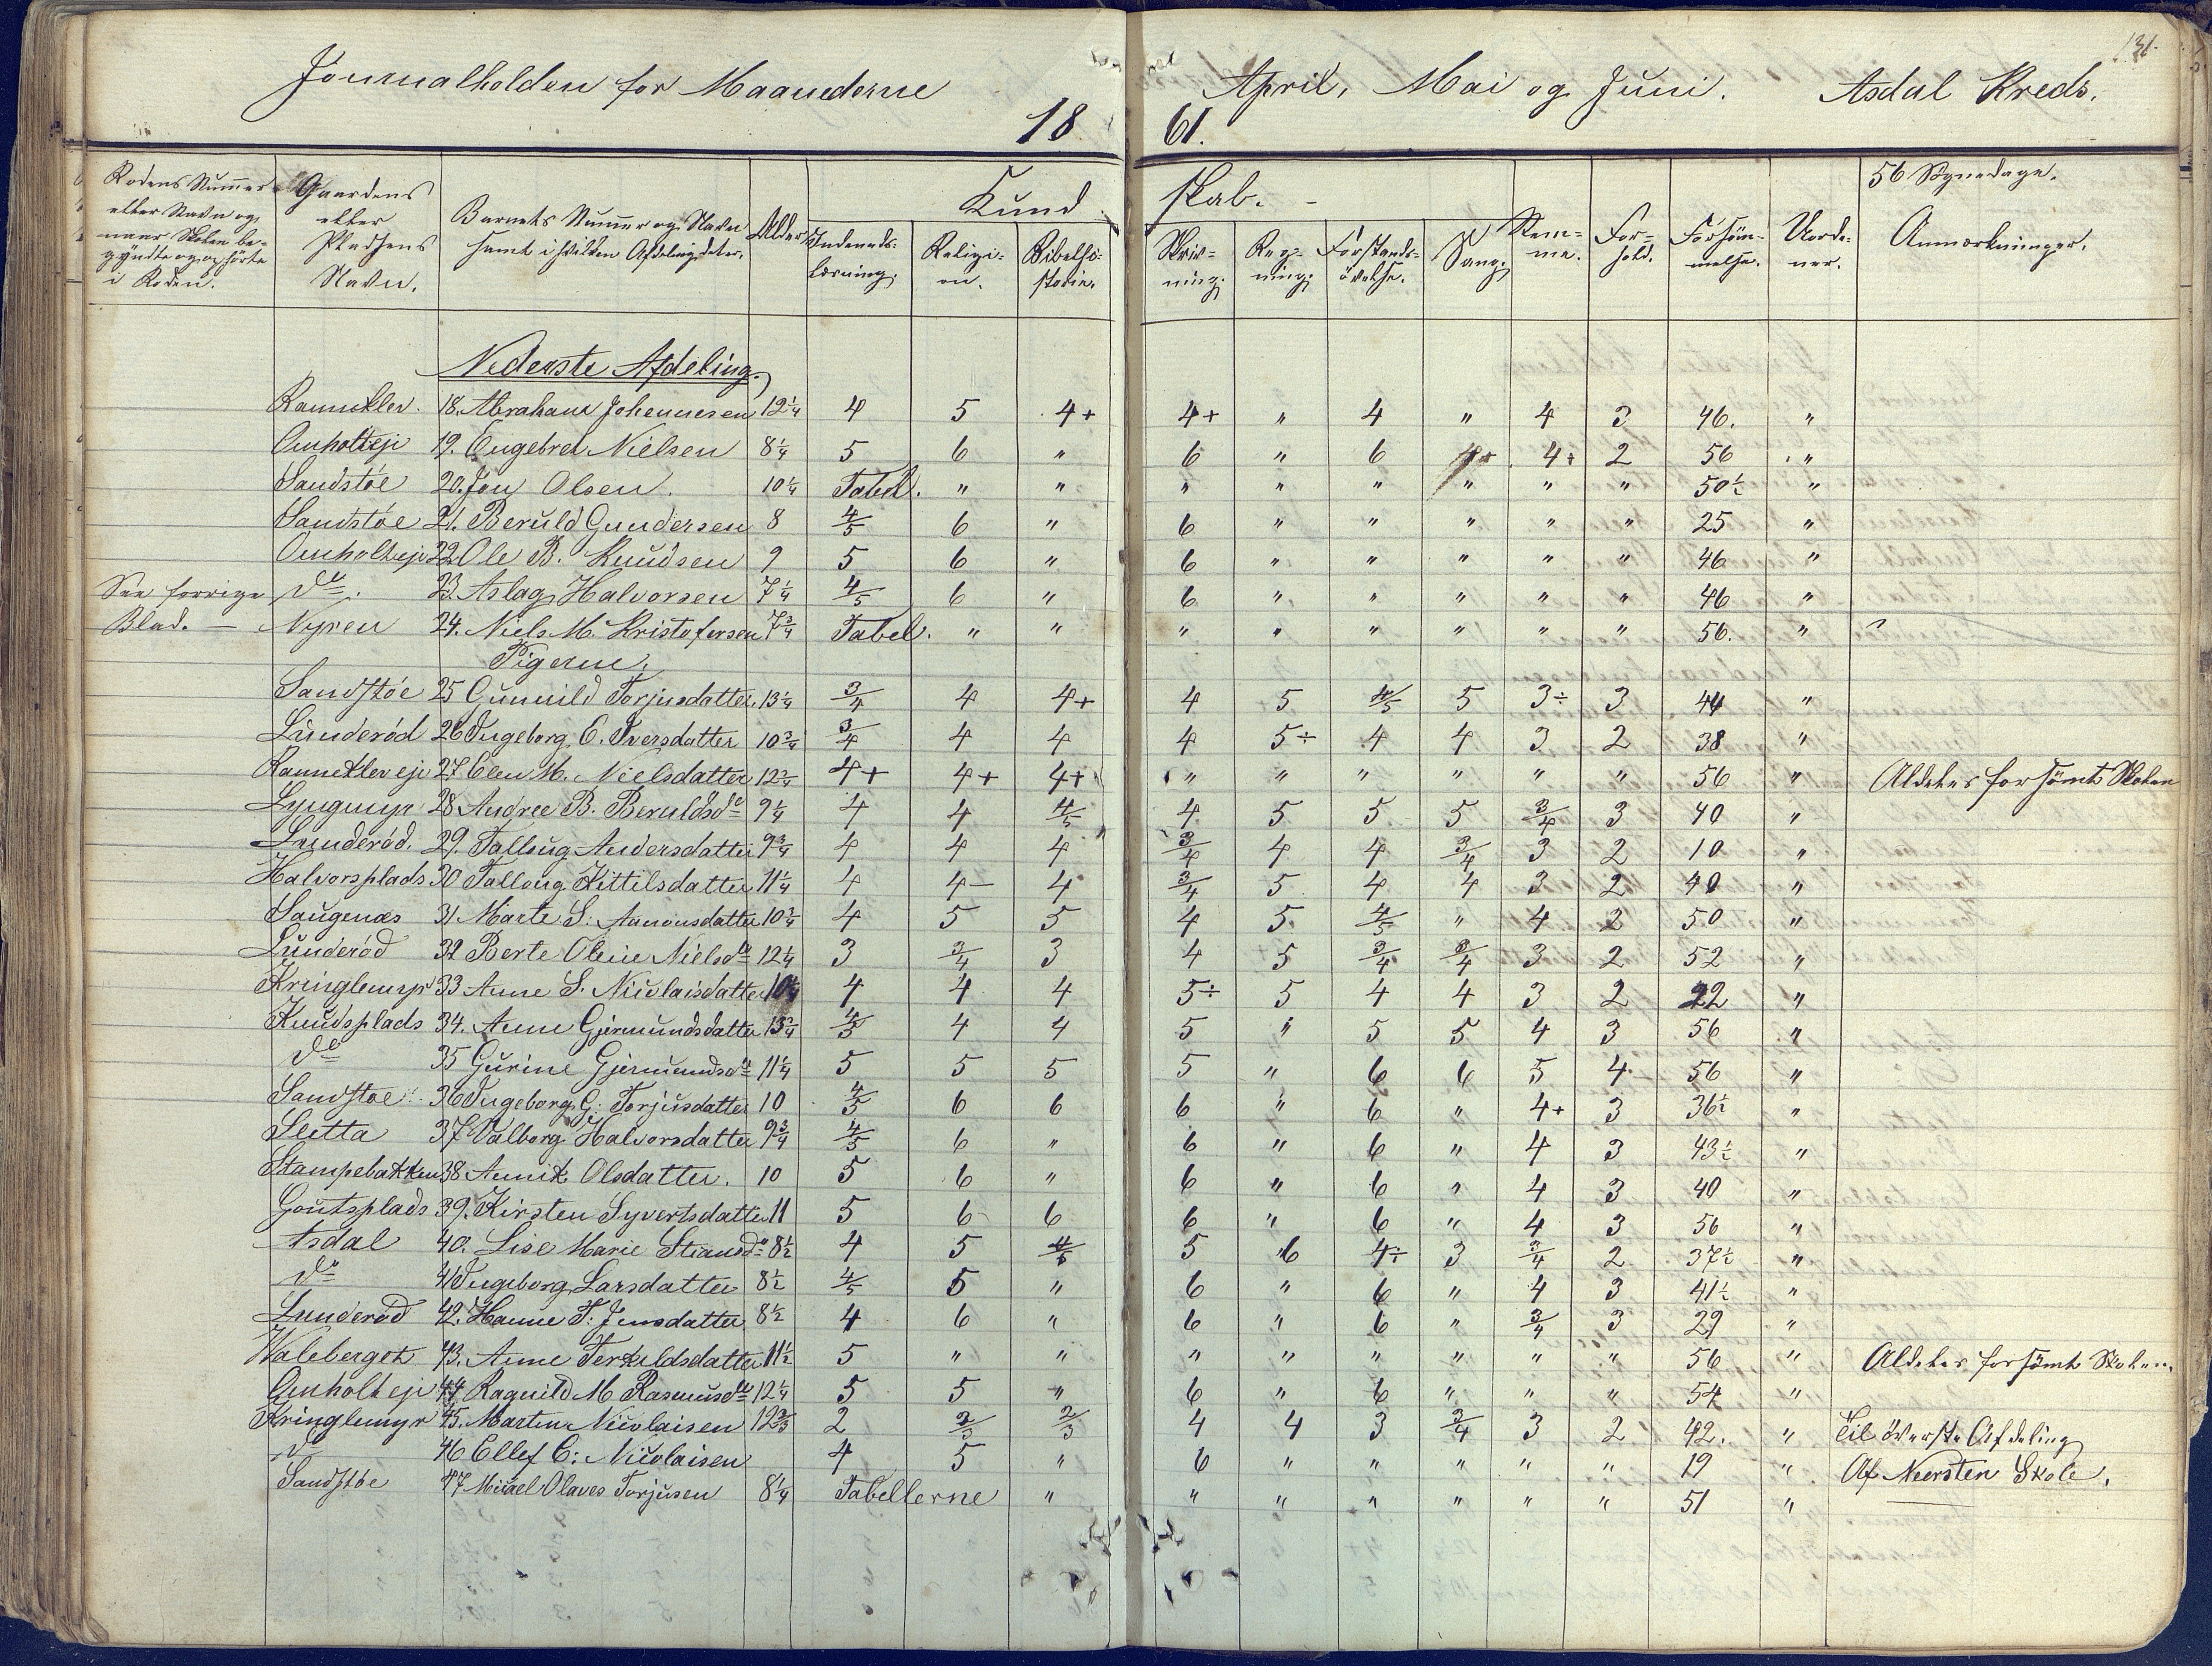 131.
Journalholden for Maanederne April, Mai og Juni. Asdal Kreds.
1861.
Rodens Nummer eller Navn og naar Skolen begyndte og ophörte i Roden.
Gaardens eller Pladsens Navn.
Barnets Nummer og Navn samt i hvilken Afdeling det er.
Alder
Kundskab.
Indenadslæsning.
Religion.
Bibelhistorie.
Skrivning.
Regning.
Forstandsövelse.
Sang.
Stemme.
Forhold.
Forsömmelse.
Uordener.
56 Skynedage.
Anmærkninger.
Nederste Afdeling.
Ranneklev. 18. Abraham Johennesen 12 1/4 4 5 4+ 4+ " 4 " 4 3 46. "
Omholteje 19. Engebret Nielsen 8 1/4 5 6 " 6 " 6 4+ 4+ 2 56 "
Sandstöe 20. Jon Olsen. 10 1/4 Tabel. " " " " " " " " 50 1/2 "
Sandstöe 21. Beruld Gundersen 8 4/5 6 " 6 " " " " " 25 "
Omholteje 22 Ole B. Knudsen 9 5 6 " 6 " " " " " 46 "
See forrige do. 23. Aslag Halvorsen 7 1/4 4/5 6 " 6 " " " " " 46 "
Blad. — Nyren 24. Niels M. Kristofersen 7 3/4 Tabel. " " " " " " " " 56. "
Pigerne.
Sandstöe 25 Gunnild Torjusdatter. 13 1/4 3/4 4 4+ 4 5 4/5 5 3÷ 3 44 "
Lunderöd 26 Ingeborg O. Iversdatter 10 3/4 3/4 4 4 4 5÷ 4 4 3 2 38 "
Rannekleveje 27 Elen M. Nielsdatter 12 3/4 4+ 4+ 4+ " " " " " " 56 " Aldeles forsömt Skolen
Lyngmyr 28 Andree B. Beruldsdr 9 1/4 4 4 4/5 4 5 5 5 3/4 3 40 "
Lunderöd. 29. Talloug Andersdatter 9 3/4 4 4 4 3/4 4 4 3/4 3 2 10 "
Halvorsplads 30 Talloug Kittilsdatter 11 1/4 4 4- 4 3/4 5 4 4 3 2 40 "
Saugenæs 31 Marte S. Aanonsdatter 10 3/4 4 5 5 4 5 4/5 " 4 2 50 "
Lunderöd 32 Berte Oline Nielsdr 12 1/4 3 3/4 3 4 5 3/4 3/4 3 2 52 "
Kringlemyr 33 Anne S. Nicolaisdatter 10 1/4 4 4 4 5÷ 5 4 4 3 2 22 "
Knudsplads 34. Anne Gjermundsdatter 13 3/4 4/5 4 4 5 " 5 5 4 3 56 "
do 35 Gurine Gjermundsdr 11 1/4 5 5 5 5 " 6 6 5 4 56 "
Sandstöe 36 Ingeborg G. Torjusdatter 10 4/5 6 6 6 " 6 " 4+ 3 36 1/2 "
Sletta 37 Valborg Halvorsdatter 9 3/4 4/5 6 " 6 " 6 " 4 3 43 1/2 "
Stampebakken 38 Annik Olsdatter. 10 5 6 " 6 " 6 " 4 3 40 "
Goutsplads 39. Kirsten Syvertsdatter 11 5 6 6 6 " 6 " 4 3 56 "
Asdal 40. Lise Marie Stiansdr 8 1/2 4 5 4/5 5 6 4÷ 3 3/4 2 37 1/2 "
do 41 Ingeborg Larsdatter 8 1/2 4/5 5 " 6 " 6 " 4 3 41 1/2 "
Lunderöd 42. Hanne T. Jensdatter 8 1/2 4 6 " 6 " 6 " 3/4 3 29 "
Walebergeh 43. Anne Terkeldsdatter 11 1/2 5 " " " " " " " " 56 " Aldeles forsömt Skolen.
Omholteje 44 Ragnild M. Rasmusdr 12 1/4 5 5 " 6 " 6 " " " 54 "
Kringlemyr 45. Marten Nicolaisen 12 2/3 2 2/3 2/3 4 4 3 3/4 3 2 42. " Til överste Afdeling
do 46 Ellef C: Nicolaisen 4 5 " 6 " " " " " 19 " Af Neersten Skole.
Sandstöe 47 Micael Olaves Torjusen 8 1/4 Tabellerne " " " " " " " 51 "